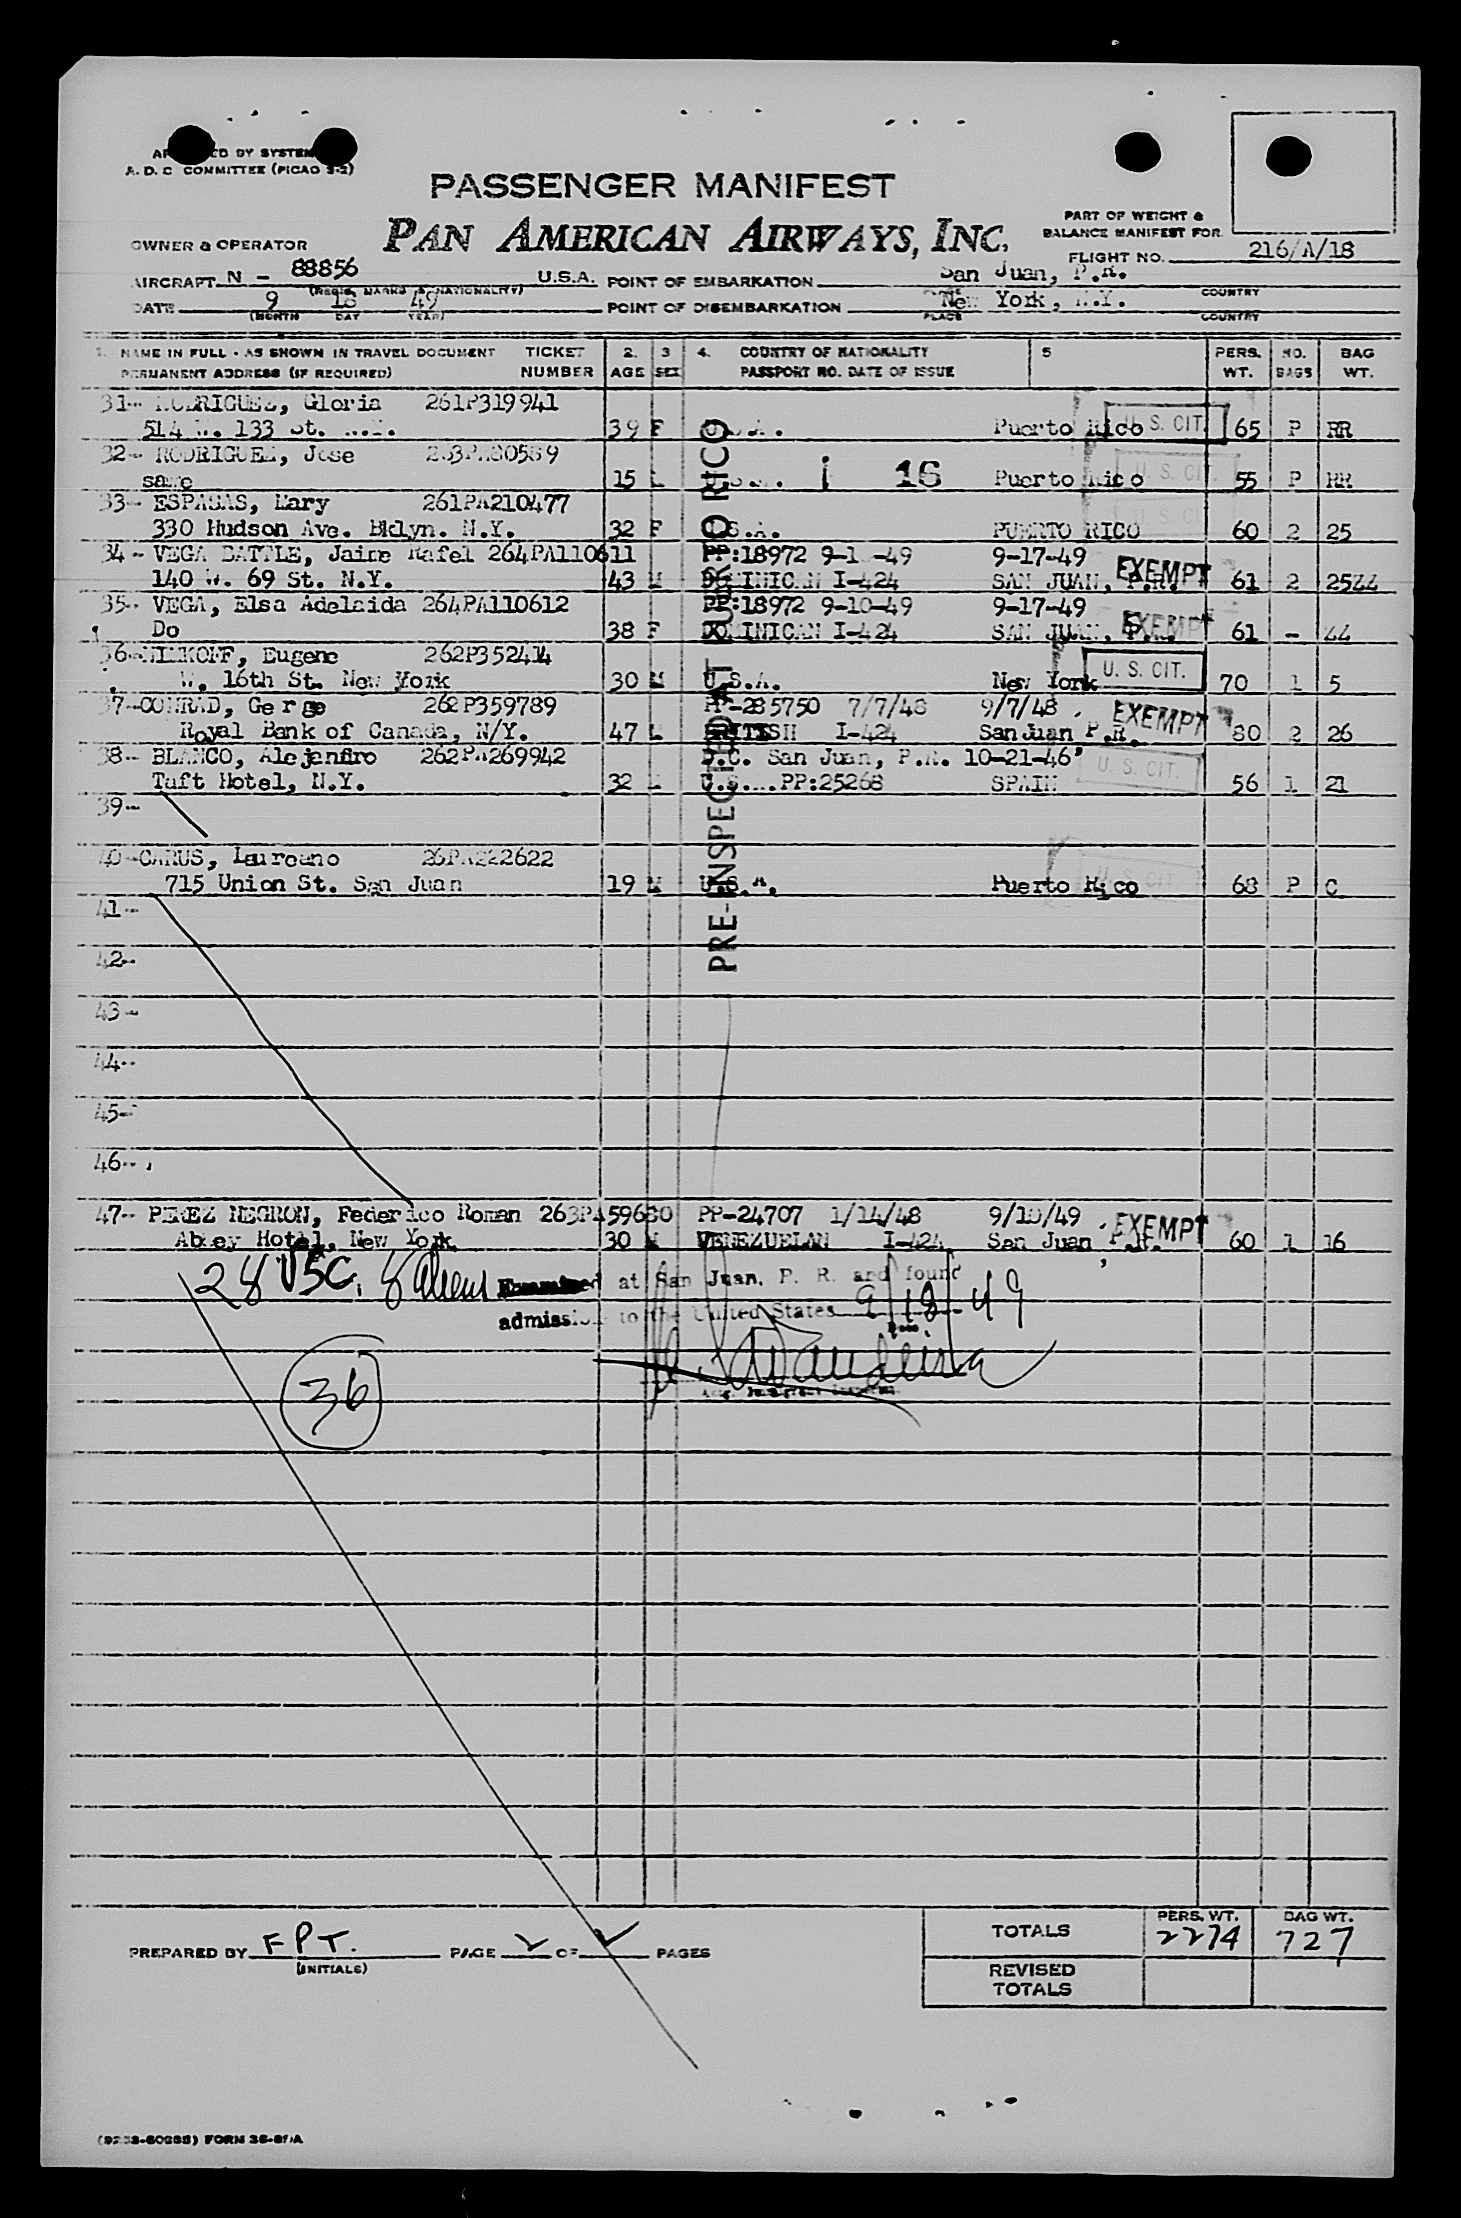 A. D. C COMMITTEE (PICAO 3-2)
PASSENGER MANIFEST
PAN AMERICAN AIRWAYS, INC.
PART OF WEIGHT &
BALANCE MANIFEST FOR
FLIGHT NO. 216/A/18
OWNER & OPERATOR
AIRCRAFT N - 88856 U.S.A. POINT OF EMBARKATION San Juan, P.R.
(REGIS. MARKS & NATIONALITY) COUNTRY
DATE 9 18 49 POINT OF DISEMBARKATION New York, N.Y.
(MONTH DAY YEAR) PLACE COUNTRY
1. NAME IN FULL - AS SHOWN IN TRAVEL DOCUMENT TICKET 2. 3 4. COUNTRY OF NATIONALITY 5 PERS. NO. BAG
PERMANENT ADDRESS (IF REQUIRED) NUMBER AGE SEX PASSPORT NO. DATE OF ISSUE WT. BAGS WT.
31-- RODRIGUEZ, Gloria 261P319941
514 W. 133 St. N.Y. 39 F U.S.A. Puerto Rico U. S. CIT. 65 P RR
32-- RODRIGUEZ, Jose
same 15 16 Puerto Rico U. S. CIT. 55 P RR
33-- ESPADAS, Mary 261PA210477 U. S. CIT
330 Hudson Ave. Bklyn. N.Y. 32 F U.S.A. PUERTO RICO 60 2 25
34-- VEGA BATTLE, Jaime Rafel 264PA110611 PP:18972 9-1 -49 9-17-49 EXEMPT
140 W. 69 St. N.Y. 43 M DOMINICAN I-424 SAN JUAN, P.R. 61 2 2544
35-- VEGA, Elsa Adelaida 264PA110612 PP:18972 9-10-49 9-17-49 EXEMPT
Do 38 F DOMINICAN I-424 SAN JUAN, P.R. 61 - 44
36- Eugene 262P352414
W. 16th St. New York 30 M U.S.A. New York U. S. CIT. 70 1 5
37--CONRAD, George 262P359789 PP-285750 7/7/48 9/7/48 EXEMPT
Royal Bank of Canada, N/Y. 47 M BRITISH I-424 San Juan P.R. 80 2 26
38-- BLANCO, Alejandro 262PA269942 D.C. San Juan, P.R. 10-21-46 U. S. CIT.
Taft Hotel, N.Y. 32 M PP:25268 SPAIN 56 1 21
39--
40-CARUS, Laureano
715 Union St. San Juan 19 M U.S.A. Puerto Rico U. S. CIT. 68 P C
41--
42--
43--
44--
45--
46--
47-- PEREZ NEGRON, Federico Roman PP-24707 1/14/48 9/10/49 EXEMPT
Abbey Hotel, New York 30 M VENEZUELAN I-42A San Juan P.R. 60 1 16
PRE-INSPECTED AT PUERTO RICO
28 USC, 8 Aliens Examined at San Juan, P. R. and found
admission to the United States 9/18/49
36
TOTALS PERS. WT. 2274 BAG WT. 727
PREPARED BY FPT. PAGE 2 OF 2 PAGES
(INITIALS)
REVISED
TOTALS